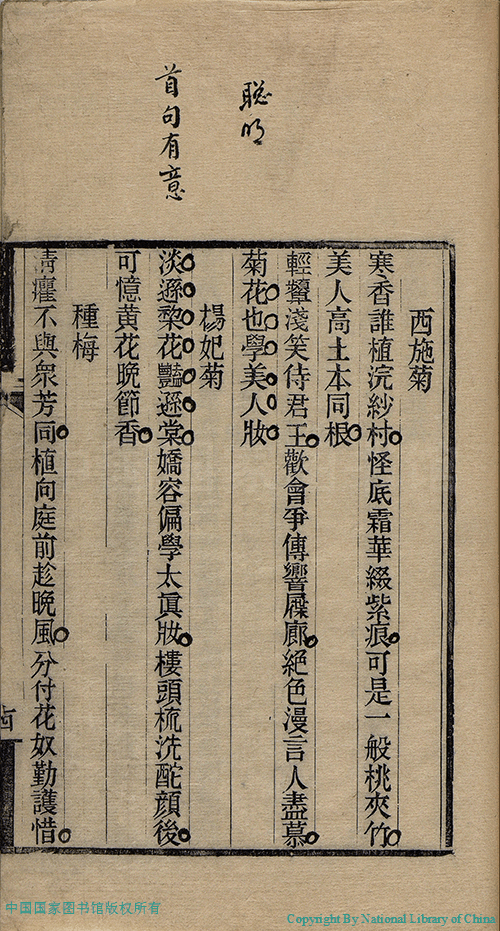 聰明
首句有意
西施菊
寒香誰植浣紗村怪底霜華綴紫痕可是一般桃夾竹
美人高士本同根
輕顰淺笑侍君王歡會爭傳響屧廊絕色漫言人盡慕
菊花也學美人妝
楊妃菊
淡遜棃花豔遜棠嬌容偏學太眞妝樓頭梳洗酡顏後
可憶黃花晚節香
種梅
淸癯不與衆芳同植向庭前趁晚風分付花奴勤護惜
中国国家图书馆版权所有
Copyright By National Library of China